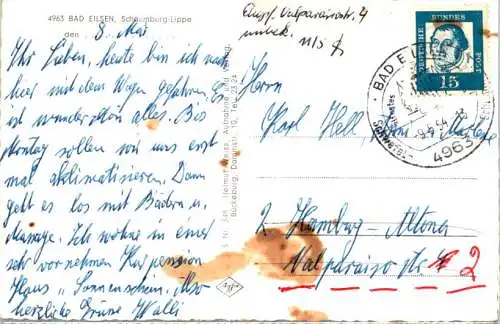 4963 BAD EILSEN, Schaumburg-Lippe
den 8. Mai
Ihr Lieben, heute bin ich nach
hier mit dem Wagen gefahren. Es
ist wunderschön alles. Bis
Montag sollen wir uns erst
mal aklimatisieren. Dann
geht es los mit Bädern u.
Massage. Ich wohne in einer
sehr vornehmen Kurpension
Haus "Sonnenschein". Also
herzliche Grüsse Walli
Helmut Weiss, Aufnahme und Verlag,
Bückeburg, Tel. 23 24
Agfa
Empf. Valparaisostr. 4
unbek. 11/5
DEUTSCHE BUNDESPOST
15
BAD EILSEN
4963
Herrn
Karl Hell
2 Hamburg-Altona
Valparaiso Str. 2